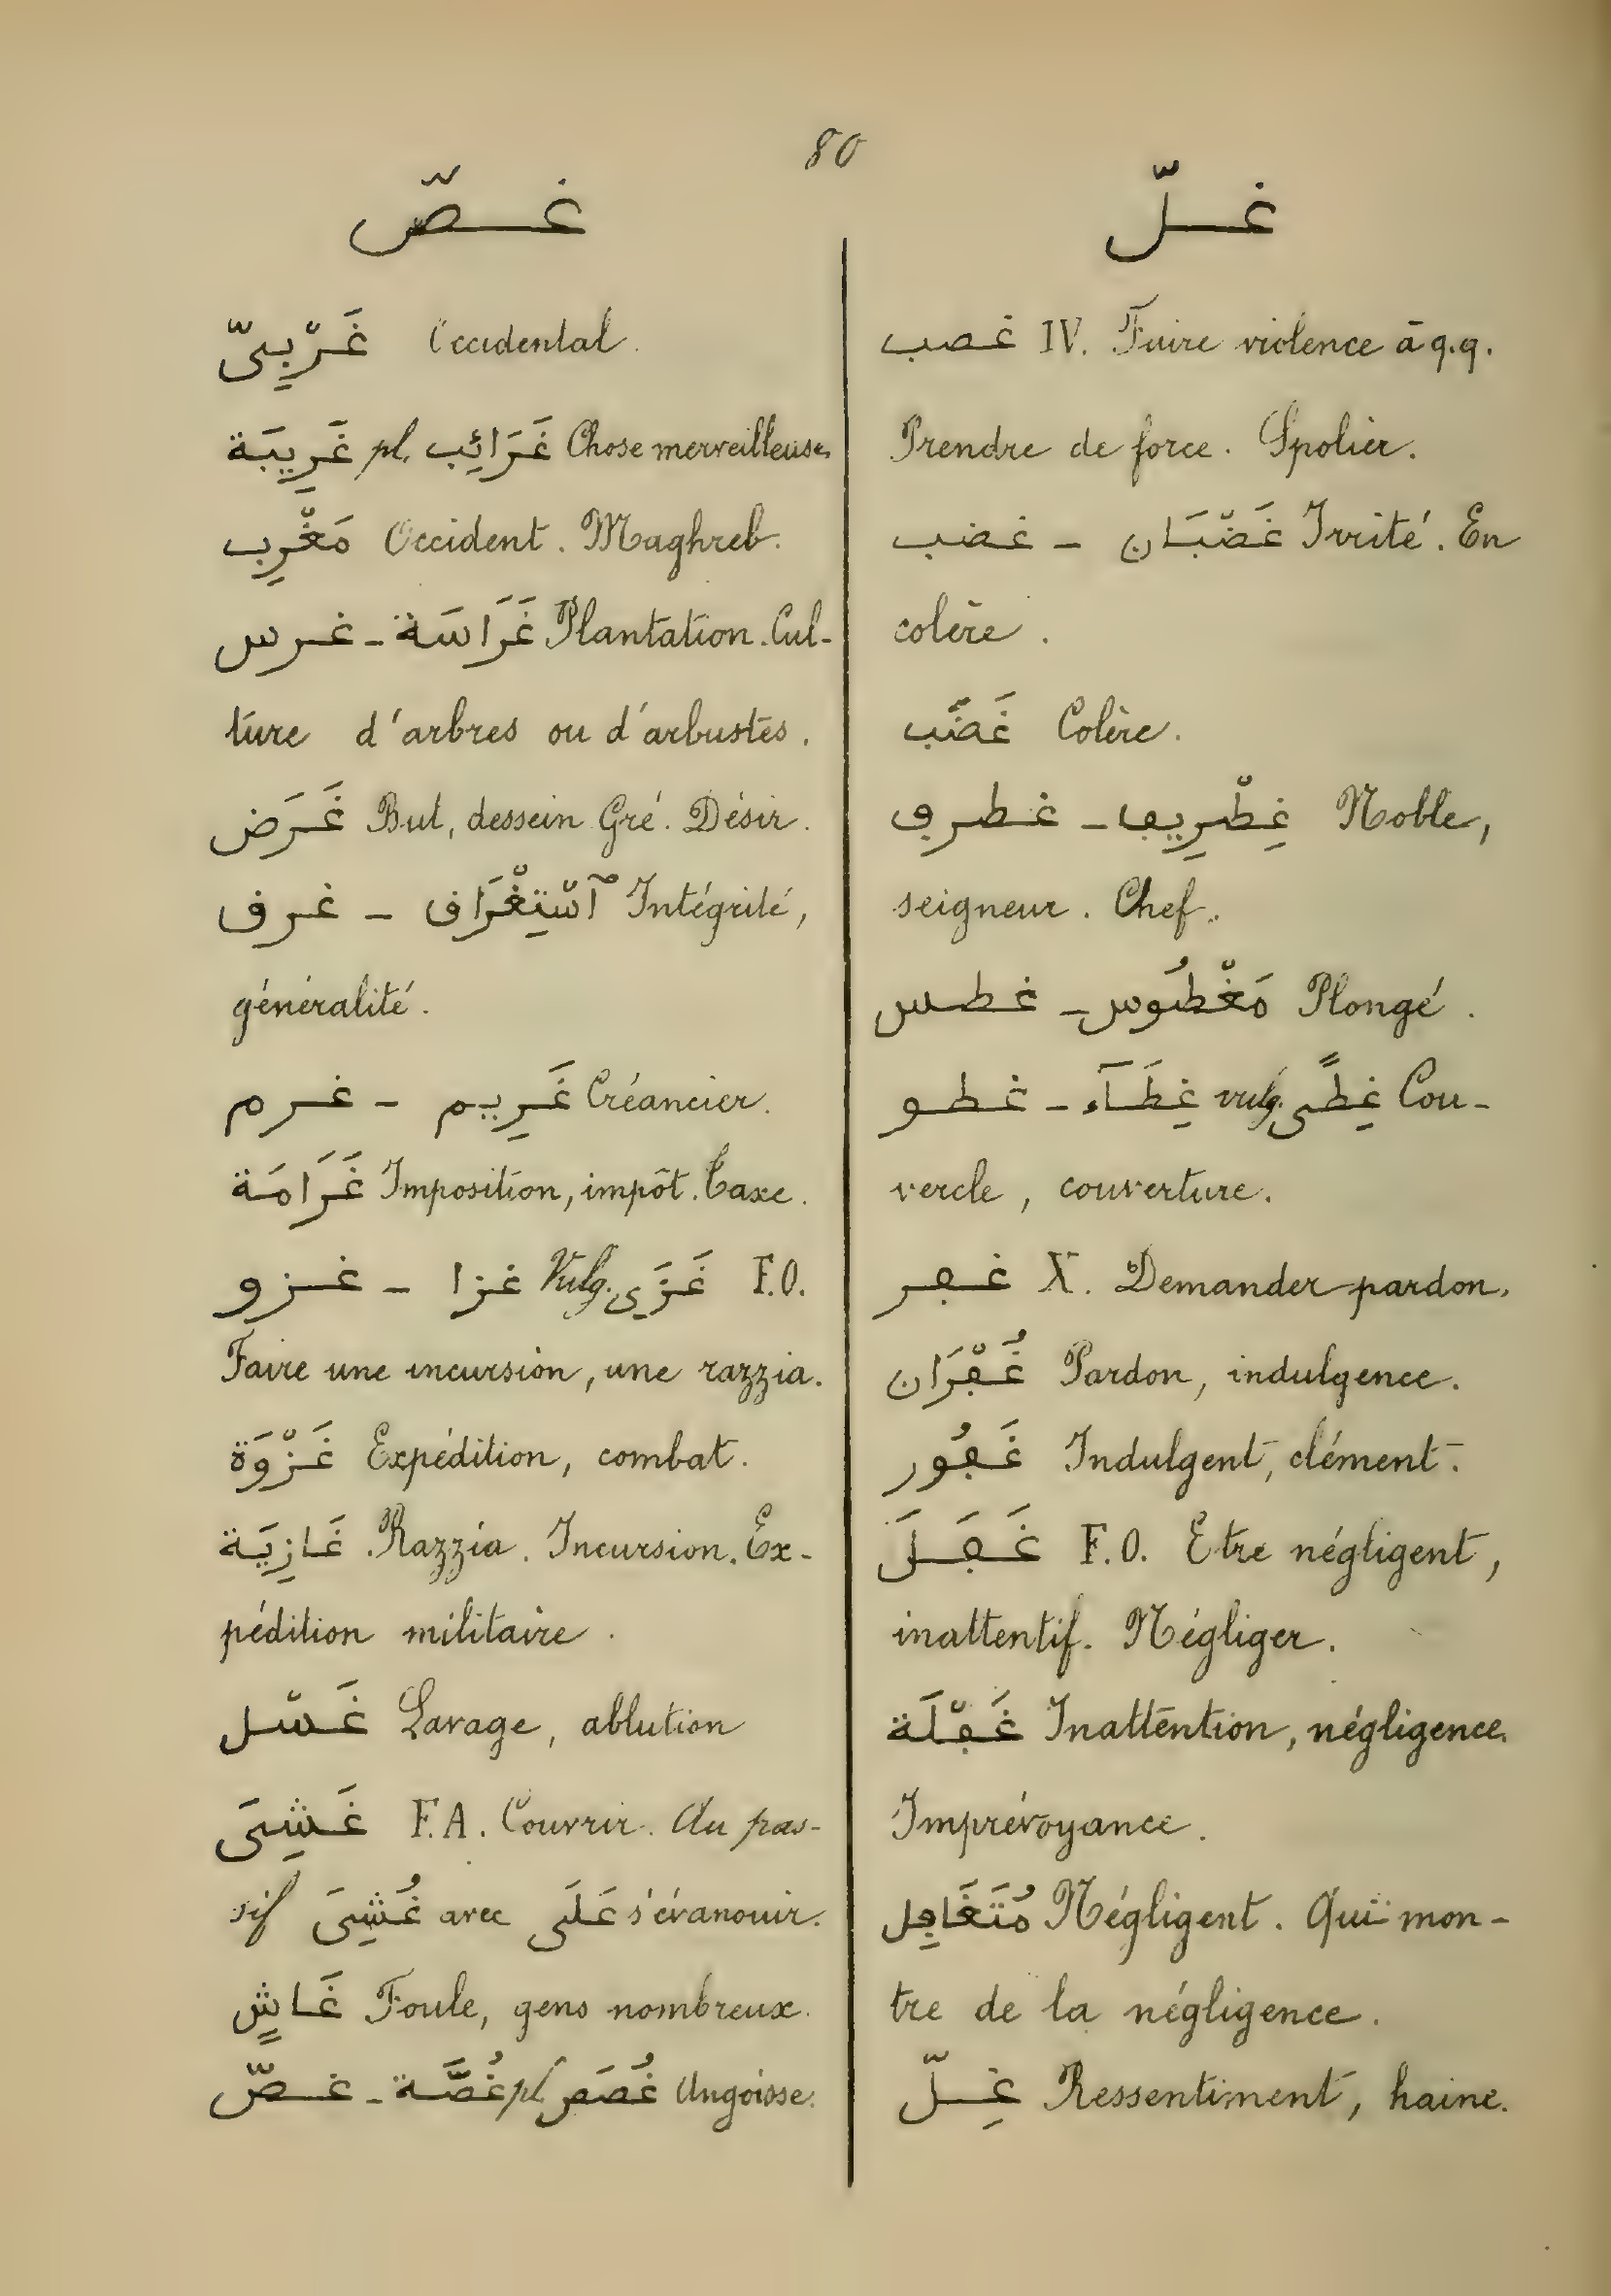 80
غصّ
غلّ
غَرْبِىّ Occidental.
غَرِيبَة pl. غَرَائِب Chose merveilleuse.
مَغْرِب Occident. Maghreb.
غرس - غَرَاسَة Plantation. Cul-
ture d'arbres ou d'arbustes.
غَرَض But, dessein Gré. Désir.
غرق - آسْتِغْرَاق Intégrité,
généralité.
غرم - غَرِيم Créancier.
غَرَامَة Imposition, impôt. Taxe.
غزو - غزا Vulg. غَزَى F.O.
Faire une incursion, une razzia.
غَزْوَة Expédition, combat.
غَازِيَة Razzia. Incursion. Ex-
pédition militaire.
غَسْل Lavage, ablution
غَشِىَ F.A. Couvrir. Au pas-
sif غُشِىَ avec عَلَى s'évanouir.
غَاشٍ Foule, gens nombreux.
غصّ - غُصَّة pl غُصَص Angoisse.
غصب IV. Faire violence à q.q.
Prendre de force. Spolier.
غضب - غَضْبَان Irrité. En
colère.
غَضَب Colère.
غطرف - غِطْرِيف Noble,
seigneur. Chef.
غطس - مَغْطُوس Plongé.
غطو - غِطَآء vulg. غِطًى Cou-
vercle, couverture.
غفر X. Demander pardon.
غُفْرَان Pardon, indulgence.
غَفُور Indulgent, clément.
غَفَلَ F.O. Etre négligent,
inattentif. Négliger.
غَفْلَة Inattention, négligence.
Imprévoyance.
مُتَغَافِل Négligent. Qui mon-
tre de la négligence.
غِلّ Ressentiment, haine.